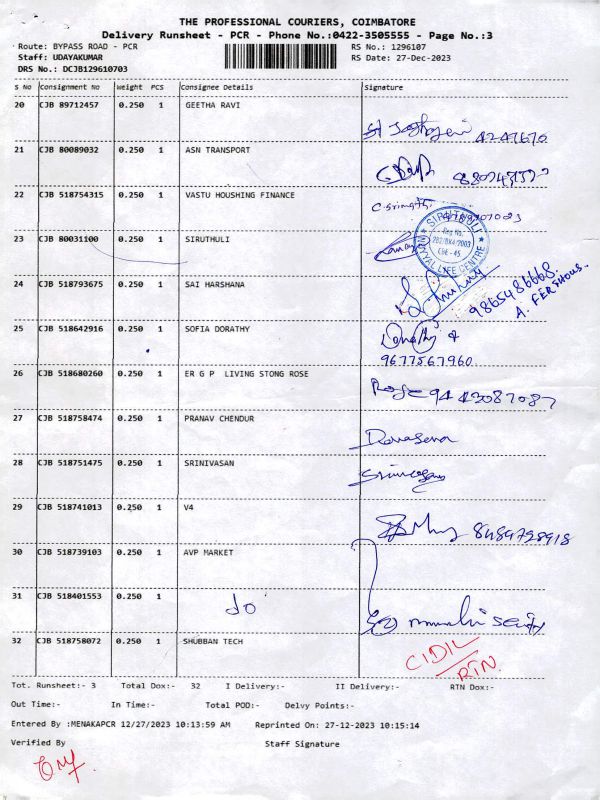 THE PROFESSIONAL COURIERS, COIMBATORE
Delivery Runsheet - PCR - Phone No.:0422-3505555 - Page No.:3
Route: BYPASS ROAD - PCR RS No.: 1296107
Staff: UDAYAKUMAR RS Date: 27-Dec-2023
DRS No.: DCJB129610703
S No Consignment No Weight PCS Consignee Details Signature
20 CJB 89712457 0.250 1 GEETHA RAVI
21 CJB 80089032 0.250 1 ASN TRANSPORT
22 CJB 518754315 0.250 1 VASTU HOUSHING FINANCE
C. Srimathi
23 CJB 80031100 0.250 1 SIRUTHULI
SIRUTHULI
Reg No.
202/BK4/2003
CBE - 45
LIFE CENTRE
24 CJB 518793675 0.250 1 SAI HARSHANA
9865486668
25 CJB 518642916 0.250 1 SOFIA DORATHY
Dorathy
9677567960
26 CJB 518680260 0.250 1 ER G P LIVING STONG ROSE
Rose 9443087087
27 CJB 518758474 0.250 1 PRANAV CHENDUR
28 CJB 518751475 0.250 1 SRINIVASAN
Srinivasan
29 CJB 518741013 0.250 1 V4
8489798918
30 CJB 518739103 0.250 1 AVP MARKET
31 CJB 518401553 0.250 1
do
32 CJB 518758072 0.250 1 SHUBBAN TECH
CIDIL
RTN
Tot. Runsheet:- 3 Total Dox:- 32 I Delivery:- II Delivery:- RTN Dox:-
Out Time:- In Time:- Total POD:- Delvy Points:-
Entered By :MENAKAPCR 12/27/2023 10:13:59 AM Reprinted On: 27-12-2023 10:15:14
Verified By Staff Signature